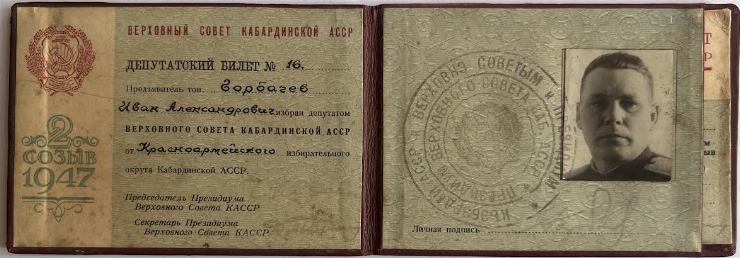 ВЕРХОВНЫЙ СОВЕТ КАБАРДИНСКОЙ АССР
ДЕПУТАТСКИЙ БИЛЕТ № 16.
Предъявитель тов. Горбачев
Иван Александрович избран депутатом
ВЕРХОВНОГО СОВЕТА КАБАРДИНСКОЙ АССР
от Красноармейского избирательного
округа Кабардинской АССР.
Председатель Президиума
Верховного Совета КАССР
Секретарь Президиума
Верховного Совета КАССР
2
СОЗЫВ
1947
ВЕРХОВНЭ СОВЕТЫМ И
ПРЕЗИДИУМ ВЕРХОВНОГО СОВЕТА КАБ. АССР
Личная подпись